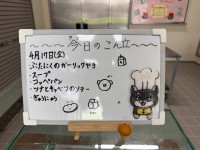 ～～～今日のこん立～～～
4月17日(金)
・ぶたにくのガーリックやき
・スープ
・コッペパン
・ツナとキャベツのソテー
・ぎゅうにゅう